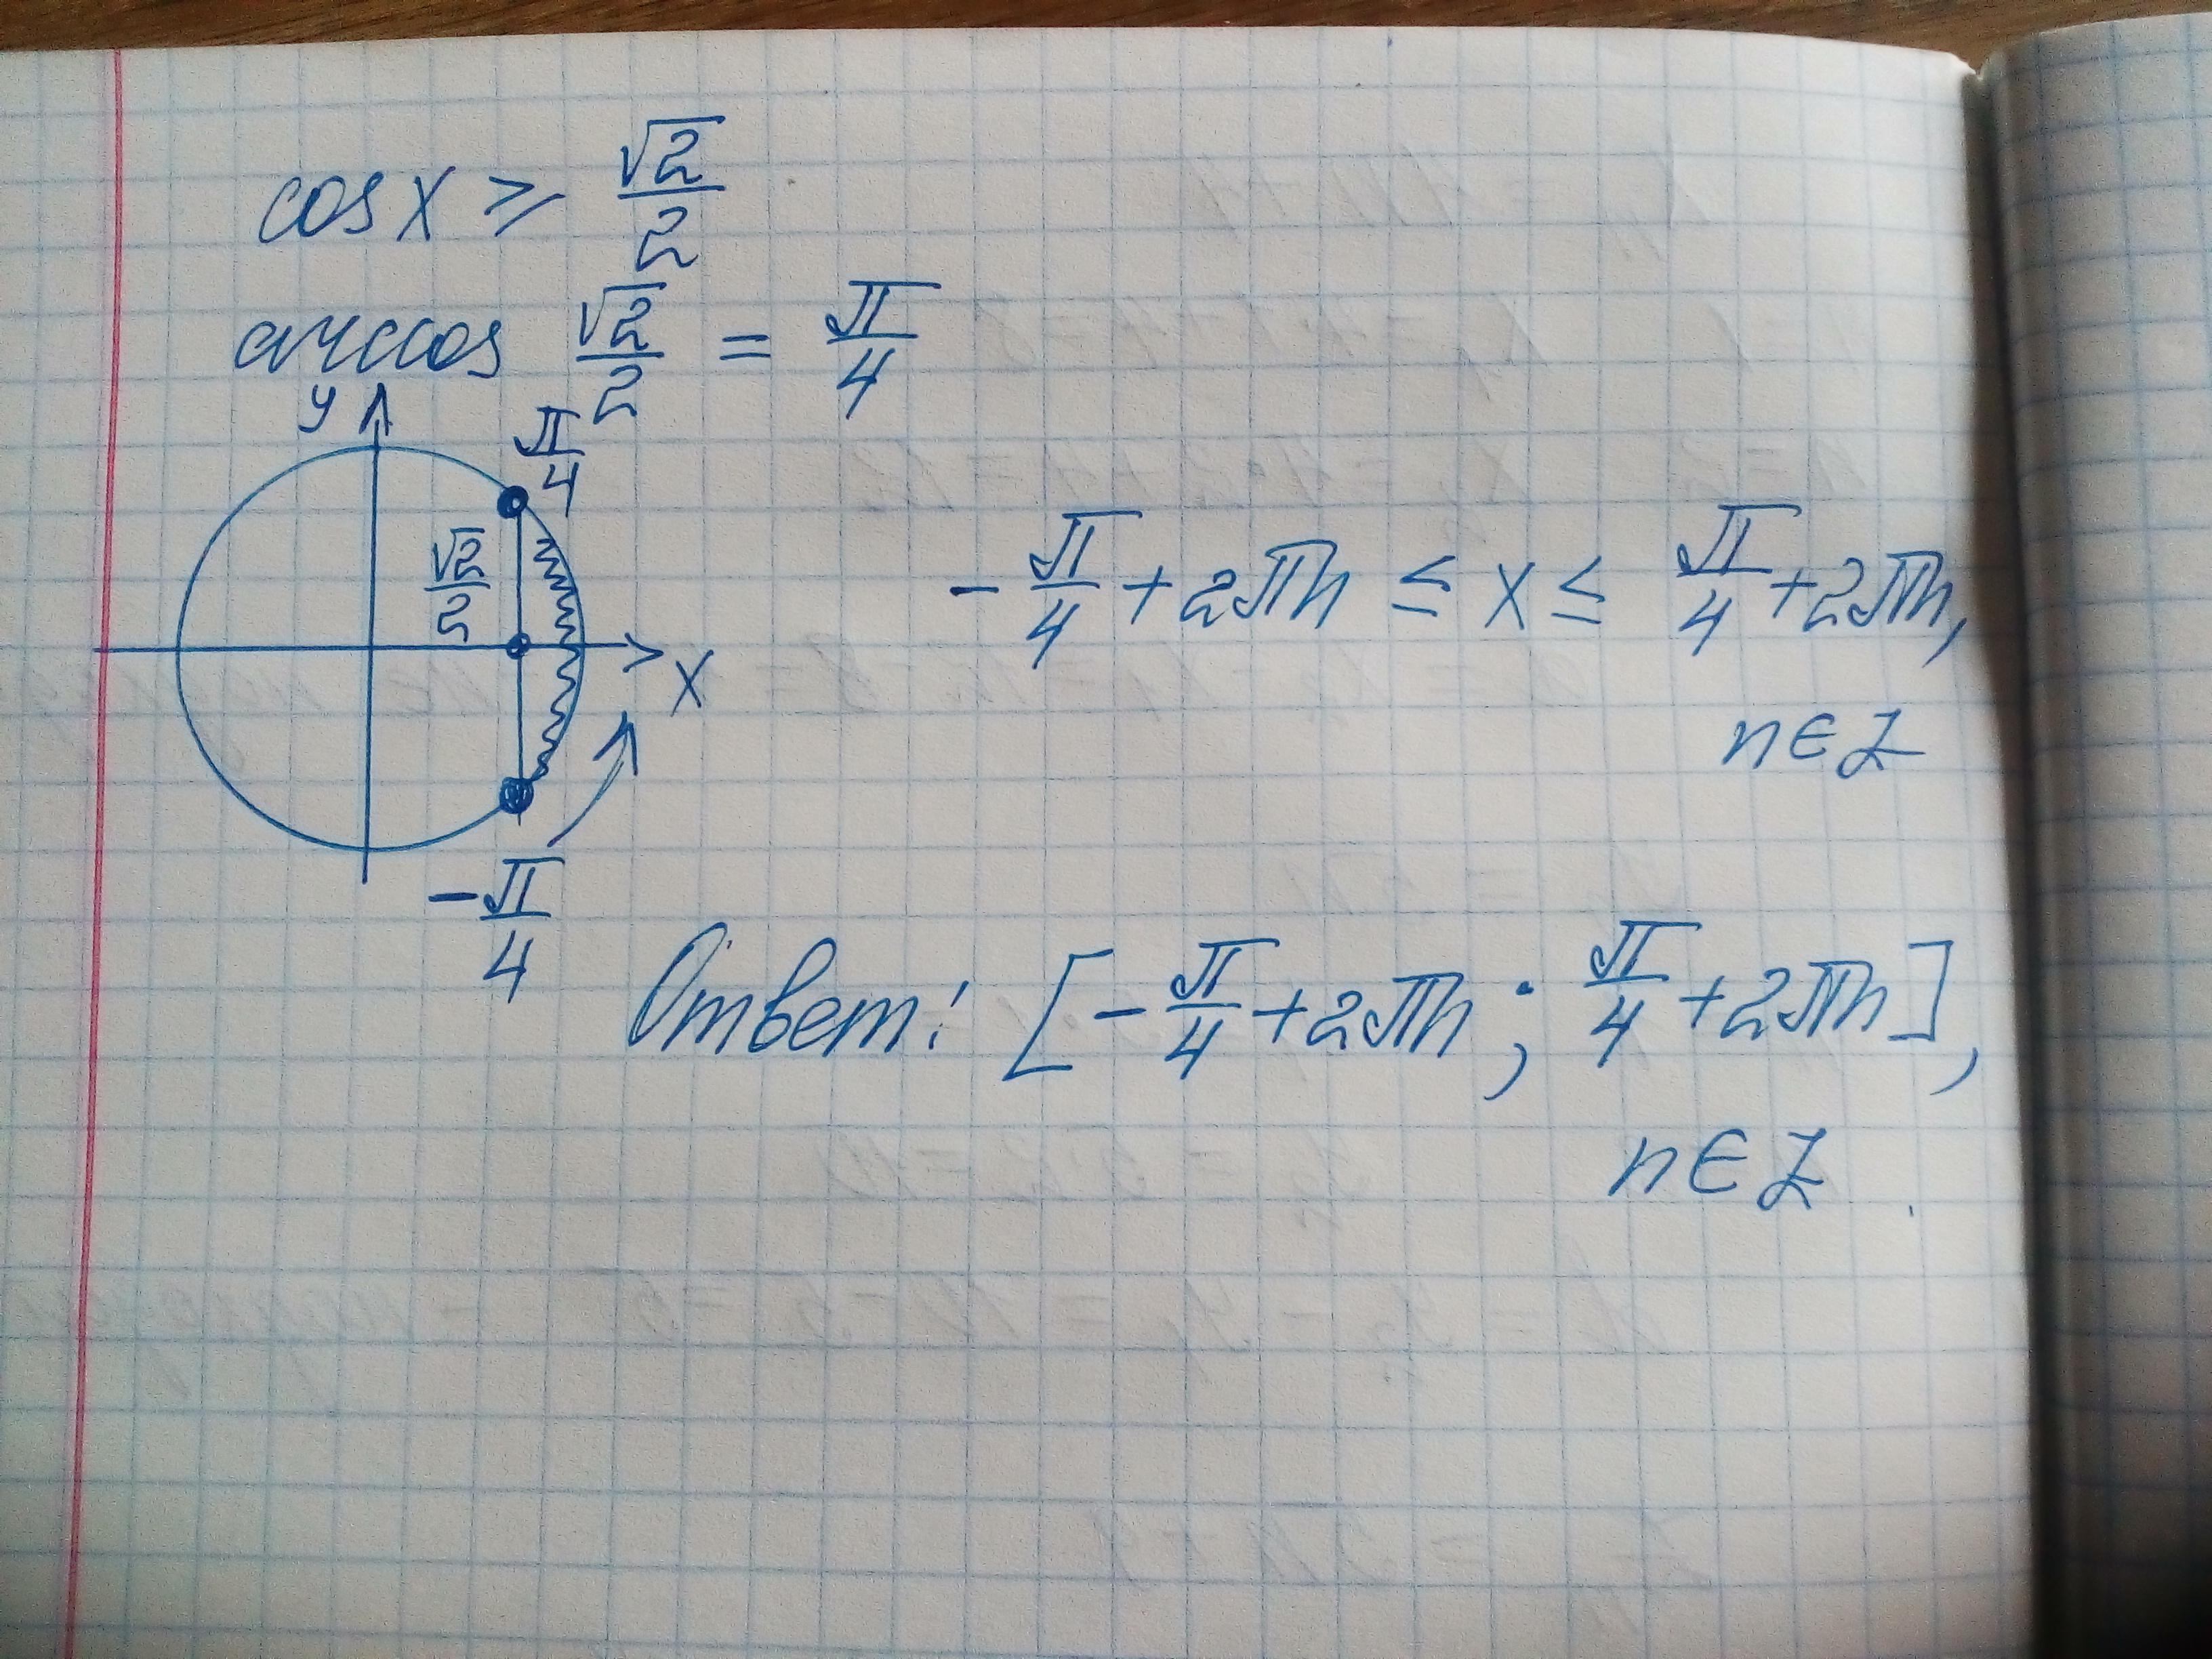 cos x ≥ √2/2
arccos √2/2 = π/4
y
π/4
√2/2
x
-π/4 + 2πn ≤ x ≤ π/4 + 2πn,
n∈Z
-π/4
Ответ: [-π/4 + 2πn; π/4 + 2πn],
n∈Z